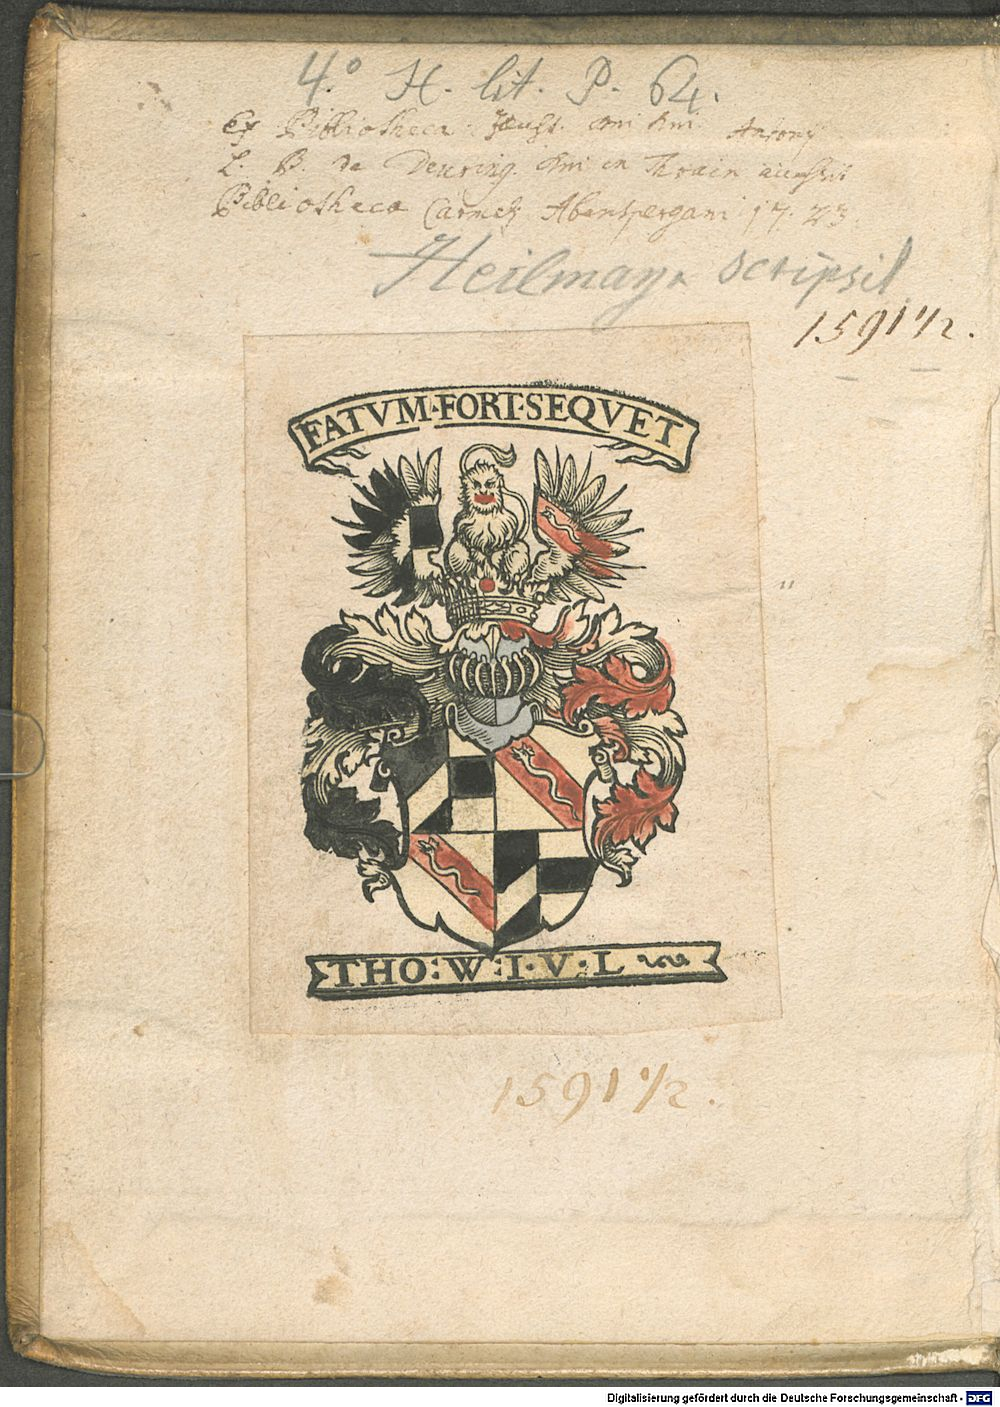 4.° H. lit. P. 64.
Ex Bibliotheca Antonij
L. B. de Deuring. in Thrain
Bibliotheca Carmel: Abenspergam 17.23
Heilmayr scripsit
1591 1/2.
FATVM·FORTI·SEQVET
THO:W:I·V·L
1591 1/2.
Digitalisierung gefördert durch die Deutsche Forschungsgemeinschaft - DFG